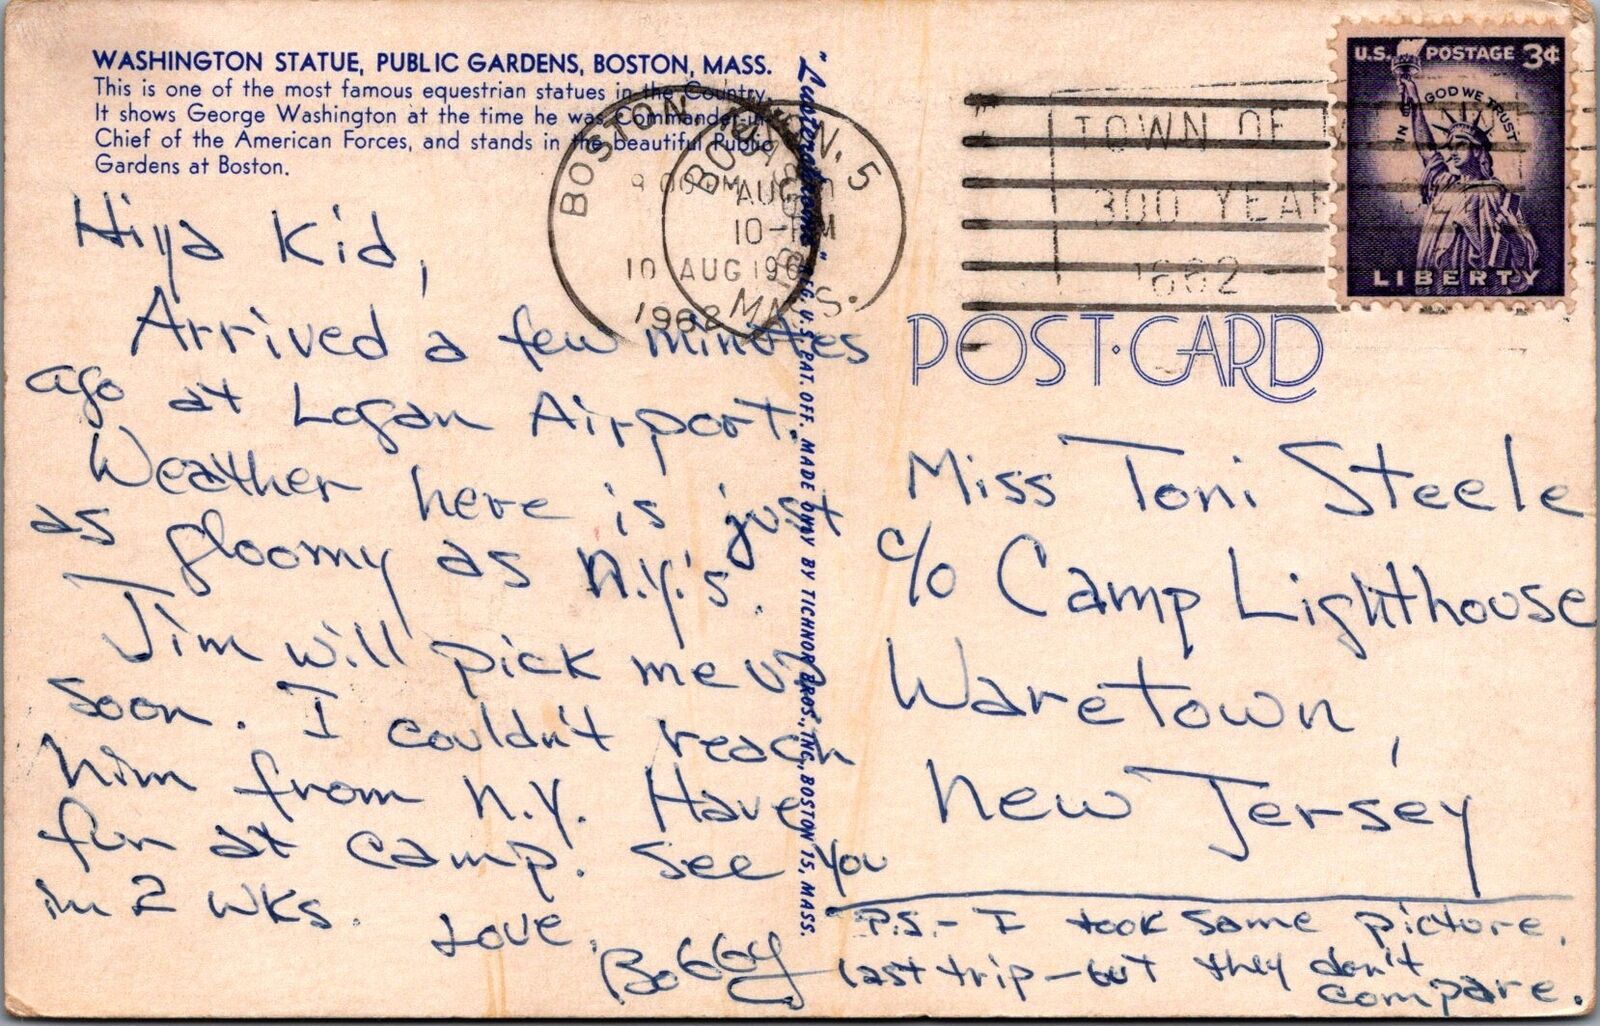 WASHINGTON STATUE, PUBLIC GARDENS, BOSTON, MASS.
This is one of the most famous equestrian statues in the Country.
It shows George Washington at the time he was Commander-in-
Chief of the American Forces, and stands in the beautiful Public
Gardens at Boston.
Hiya Kid,
Arrived a few minutes
ago at Logan Airport.
Weather here is just
as gloomy as N.Y.'s.
Jim will pick me up
soon. I couldn't reach
him from N.Y. Have
fun at camp. See you
in 2 wks.
Love,
Bobby
"Lusterchrome" REG. U.S. PAT. OFF. MADE ONLY BY TICHNOR BROS., INC., BOSTON 15, MASS.
BOSTON,
AUG 10
10-PM
10 AUG 196
1962
MASS.
TOWN OF
300 YEAR
1662
U.S. POSTAGE 3¢
IN GOD WE TRUST
LIBERTY
POST·CARD
Miss Toni Steele
c/o Camp Lighthouse
Waretown,
New Jersey
P.S. - I took same picture,
last trip - but they don't
compare.